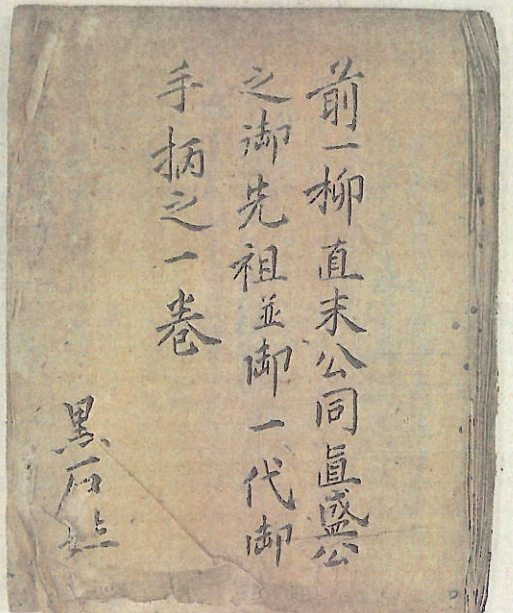 前一柳直末公同直盛公
之御先祖並御一代御
手柄之一巻
黒石